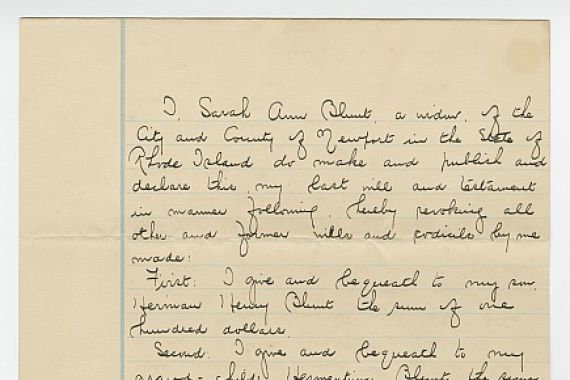 I, Sarah Ann Blunt, a widow, of the
City and County of Newport in the State of
Rhode Island do make and publish and
declare this, my last will and testament
in manner following, hereby revoking all
other and former wills and codicils by me
made:
First: I give and bequeath to my son,
Herman Henry Blunt the sum of one
hundred dollars.
Second: I give and bequeath to my
grand-child, Blunt the sum